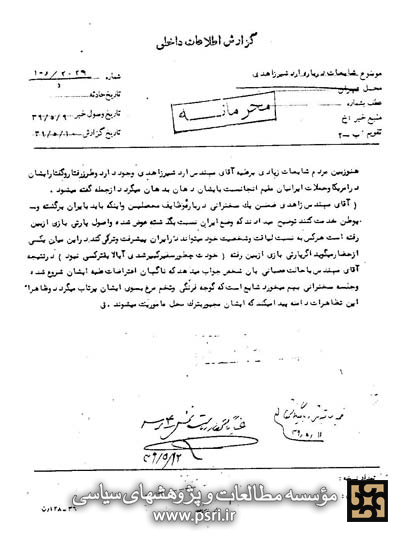 گزارش اطلاعات داخلی
موضوع شایعات درباره اردشیر زاهدی
شماره
محل تهران
تاریخ حادثه
عطف بشماره
تاریخ وصول خبر ۳۹/۵/۹
منبع خبر
تاریخ گزارش ۳۹/۵/۱۰
تقویم ب-۲
محرمانه
هنوز بین مردم شایعات زیادی برعلیه آقای مهندس اردشیر زاهدی وجود دارد و طرز رفتار و گفتار ایشان
در امریکا و حملات ایرانیان مقیم انجا نسبت بایشان دهان بدهان میگردد از جمله گفته میشود .
( آقای مهندس زاهدی ضمن یک سخنرانی درباره وظایف محصلین و اینکه باید بایران برگشته و -
بوطن خدمت کنند توضیح میدادند که وضع ایران نسبت بگذشته عوض شده و اصول پارتی بازی از بین
رفته است هرکس به نسبت لیاقت و شخصیت خود میتواند در ایران پیشرفت و ترقی کند . در این میان یکی
از حضار میگوید اگر پارتی بازی از بین رفته ( خودت چطور سفیرکبیر شدی آیا لایقتر کسی نبود ) در نتیجه
آقای مهندس با حالت عصبانی بآن شخص جواب میدهد که ناگهان اعتراضات علیه ایشان شروع شده
و جلسه سخنرانی بهم میخورد شایع است که گوجه فرنگی و تخم مرغ بسوی ایشان پرتاب میگردد و ظاهرا"
این تظاهرات دامنه پیدا میکند که ایشان مجبور بترک محل ماموریت میشوند . ق
۳۹/۵/۱۲
مؤسسه مطالعات و پژوهشهای سیاسی
www.psri.ir